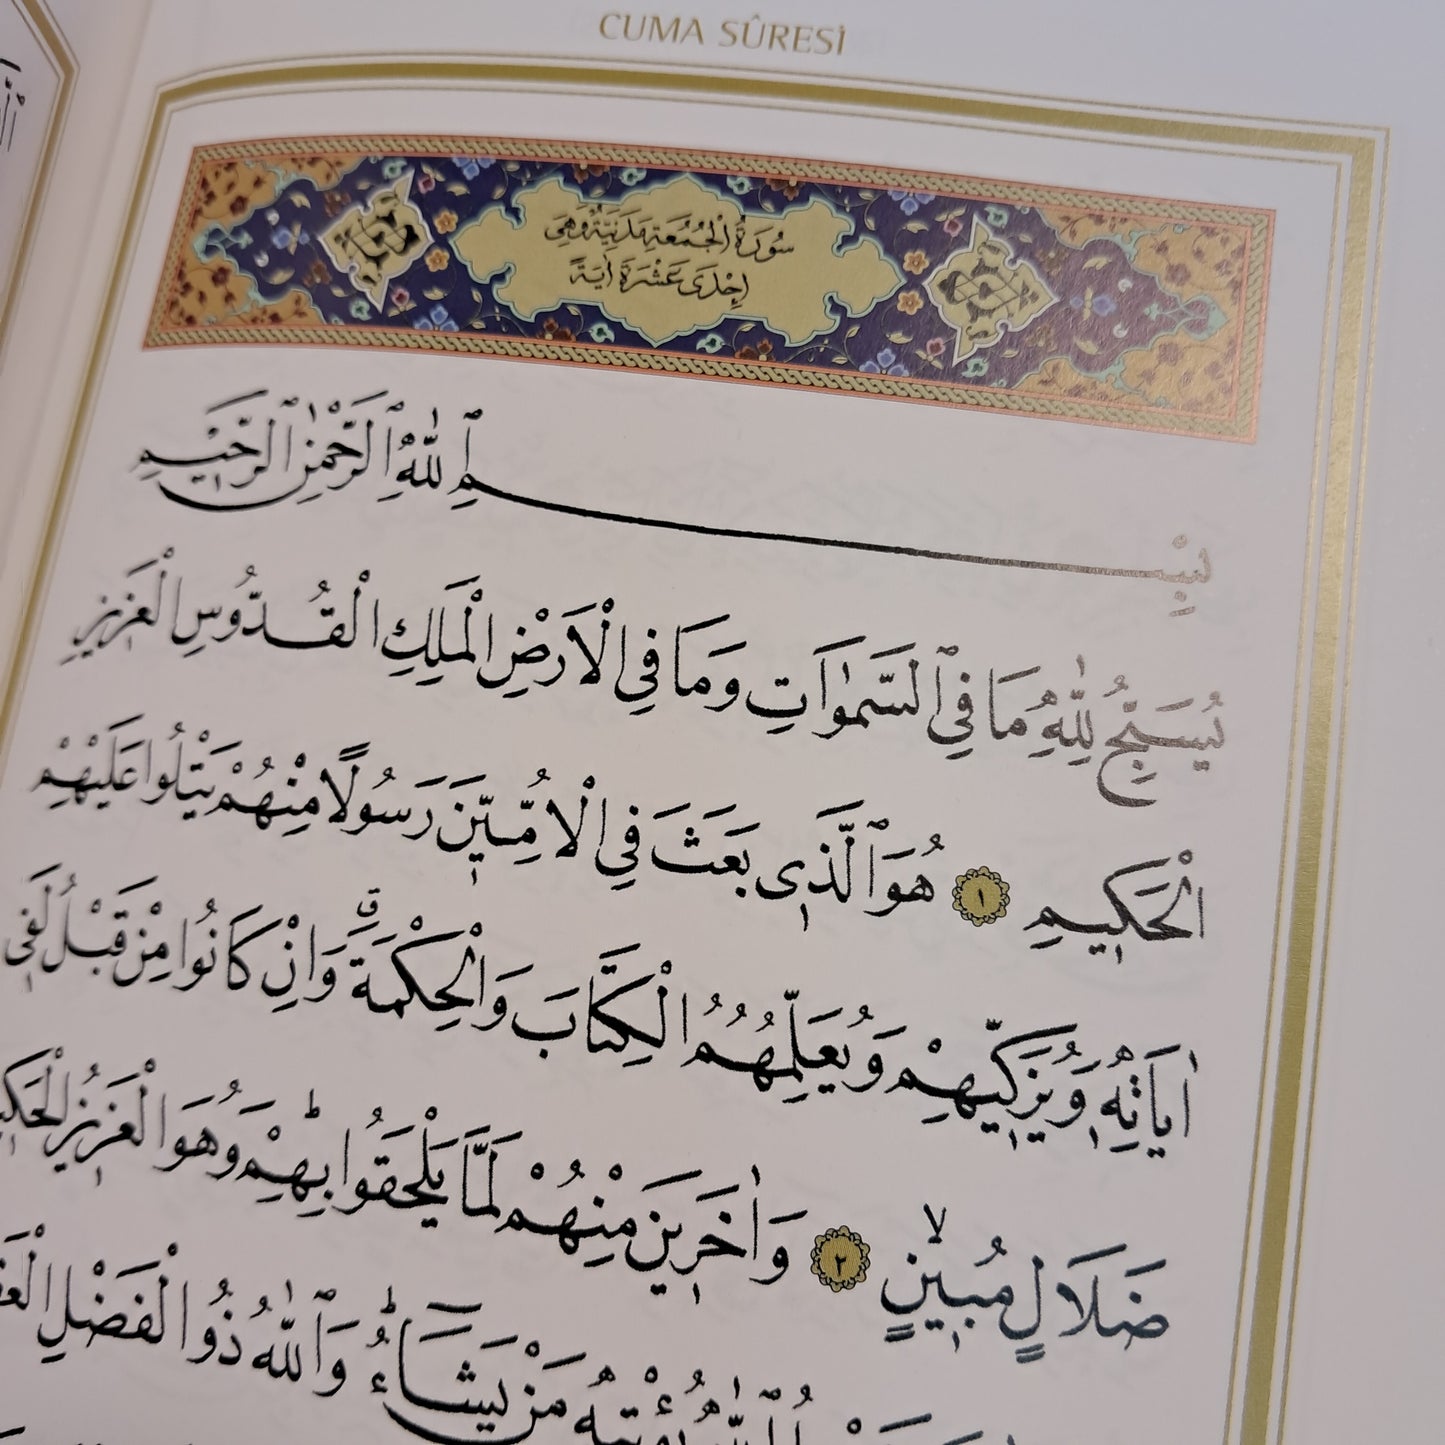 CUMA SÛRESİ
سُورَةُ الْجُمُعَةِ مَدَنِيَّةٌ وَهِيَ
اِحْدٰى عَشْرَةَ اٰيَةً
بِسْمِ اللّٰهِ الرَّحْمٰنِ الرَّح۪يمِ
يُسَبِّحُ لِلّٰهِ مَا فِي السَّمٰوَاتِ وَمَا فِي الْاَرْضِ الْمَلِكِ الْقُدُّوسِ الْعَز۪يزِ
الْحَك۪يمِ ١ هُوَ الَّذ۪ي بَعَثَ فِي الْاُمِّيّ۪نَ رَسُولًا مِنْهُمْ يَتْلُوا عَلَيْهِمْ
اٰيَاتِه۪ وَيُزَكّ۪يهِمْ وَيُعَلِّمُهُمُ الْكِتَابَ وَالْحِكْمَةَۗ وَاِنْ كَانُوا مِنْ قَبْلُ لَف۪ي
ضَلَالٍ مُب۪ينٍۙ ٢ وَاٰخَر۪ينَ مِنْهُمْ لَمَّا يَلْحَقُوا بِهِمْۜ وَهُوَ الْعَز۪يزُ
يُؤْت۪يهِ مَنْ يَشَٓاءُۜ وَاللّٰهُ ذُو الْفَضْلِ